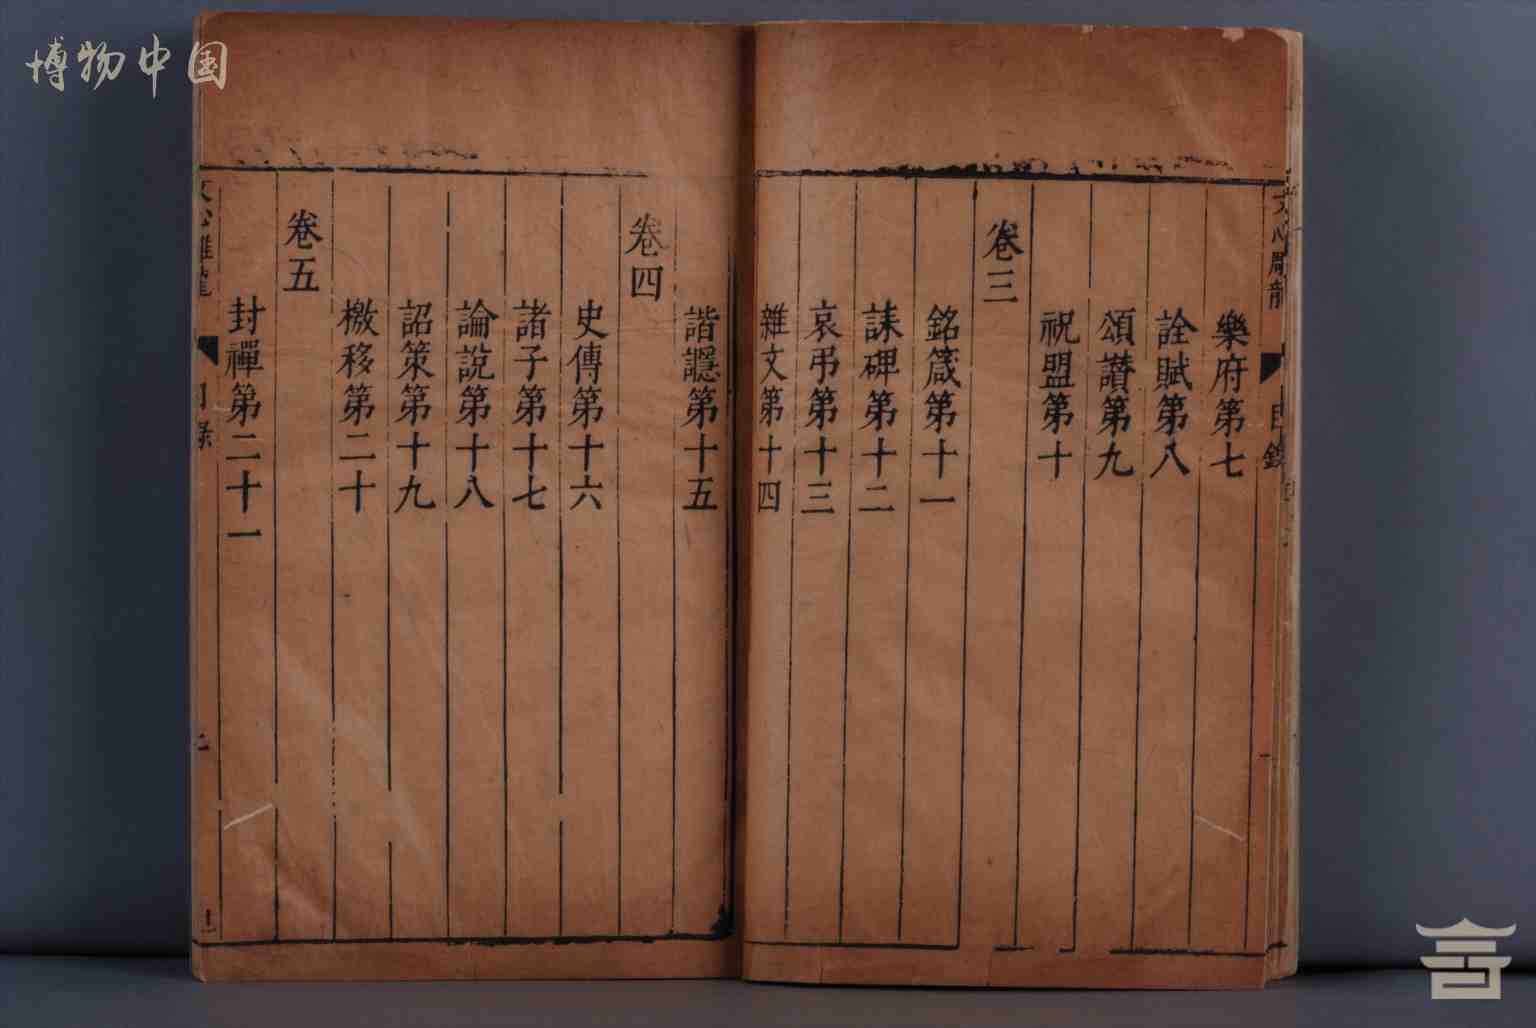 博物中国
文心雕龍
目錄
樂府第七
詮賦第八
頌讚第九
祝盟第十
卷三
銘箴第十一
誄碑第十二
哀弔第十三
雜文第十四
諧讔第十五
卷四
史傳第十六
諸子第十七
論說第十八
詔策第十九
檄移第二十
卷五
封禪第二十一
文心雕龍
目錄